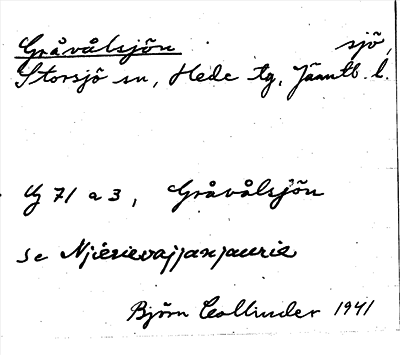 Gråvålsjön sjö,
Storsjö sn, Hede tg, Jämtl. l.
G 71 a 3, Gråvålsjön
se Njierievajjanjaurie
Björn Collinder 1941